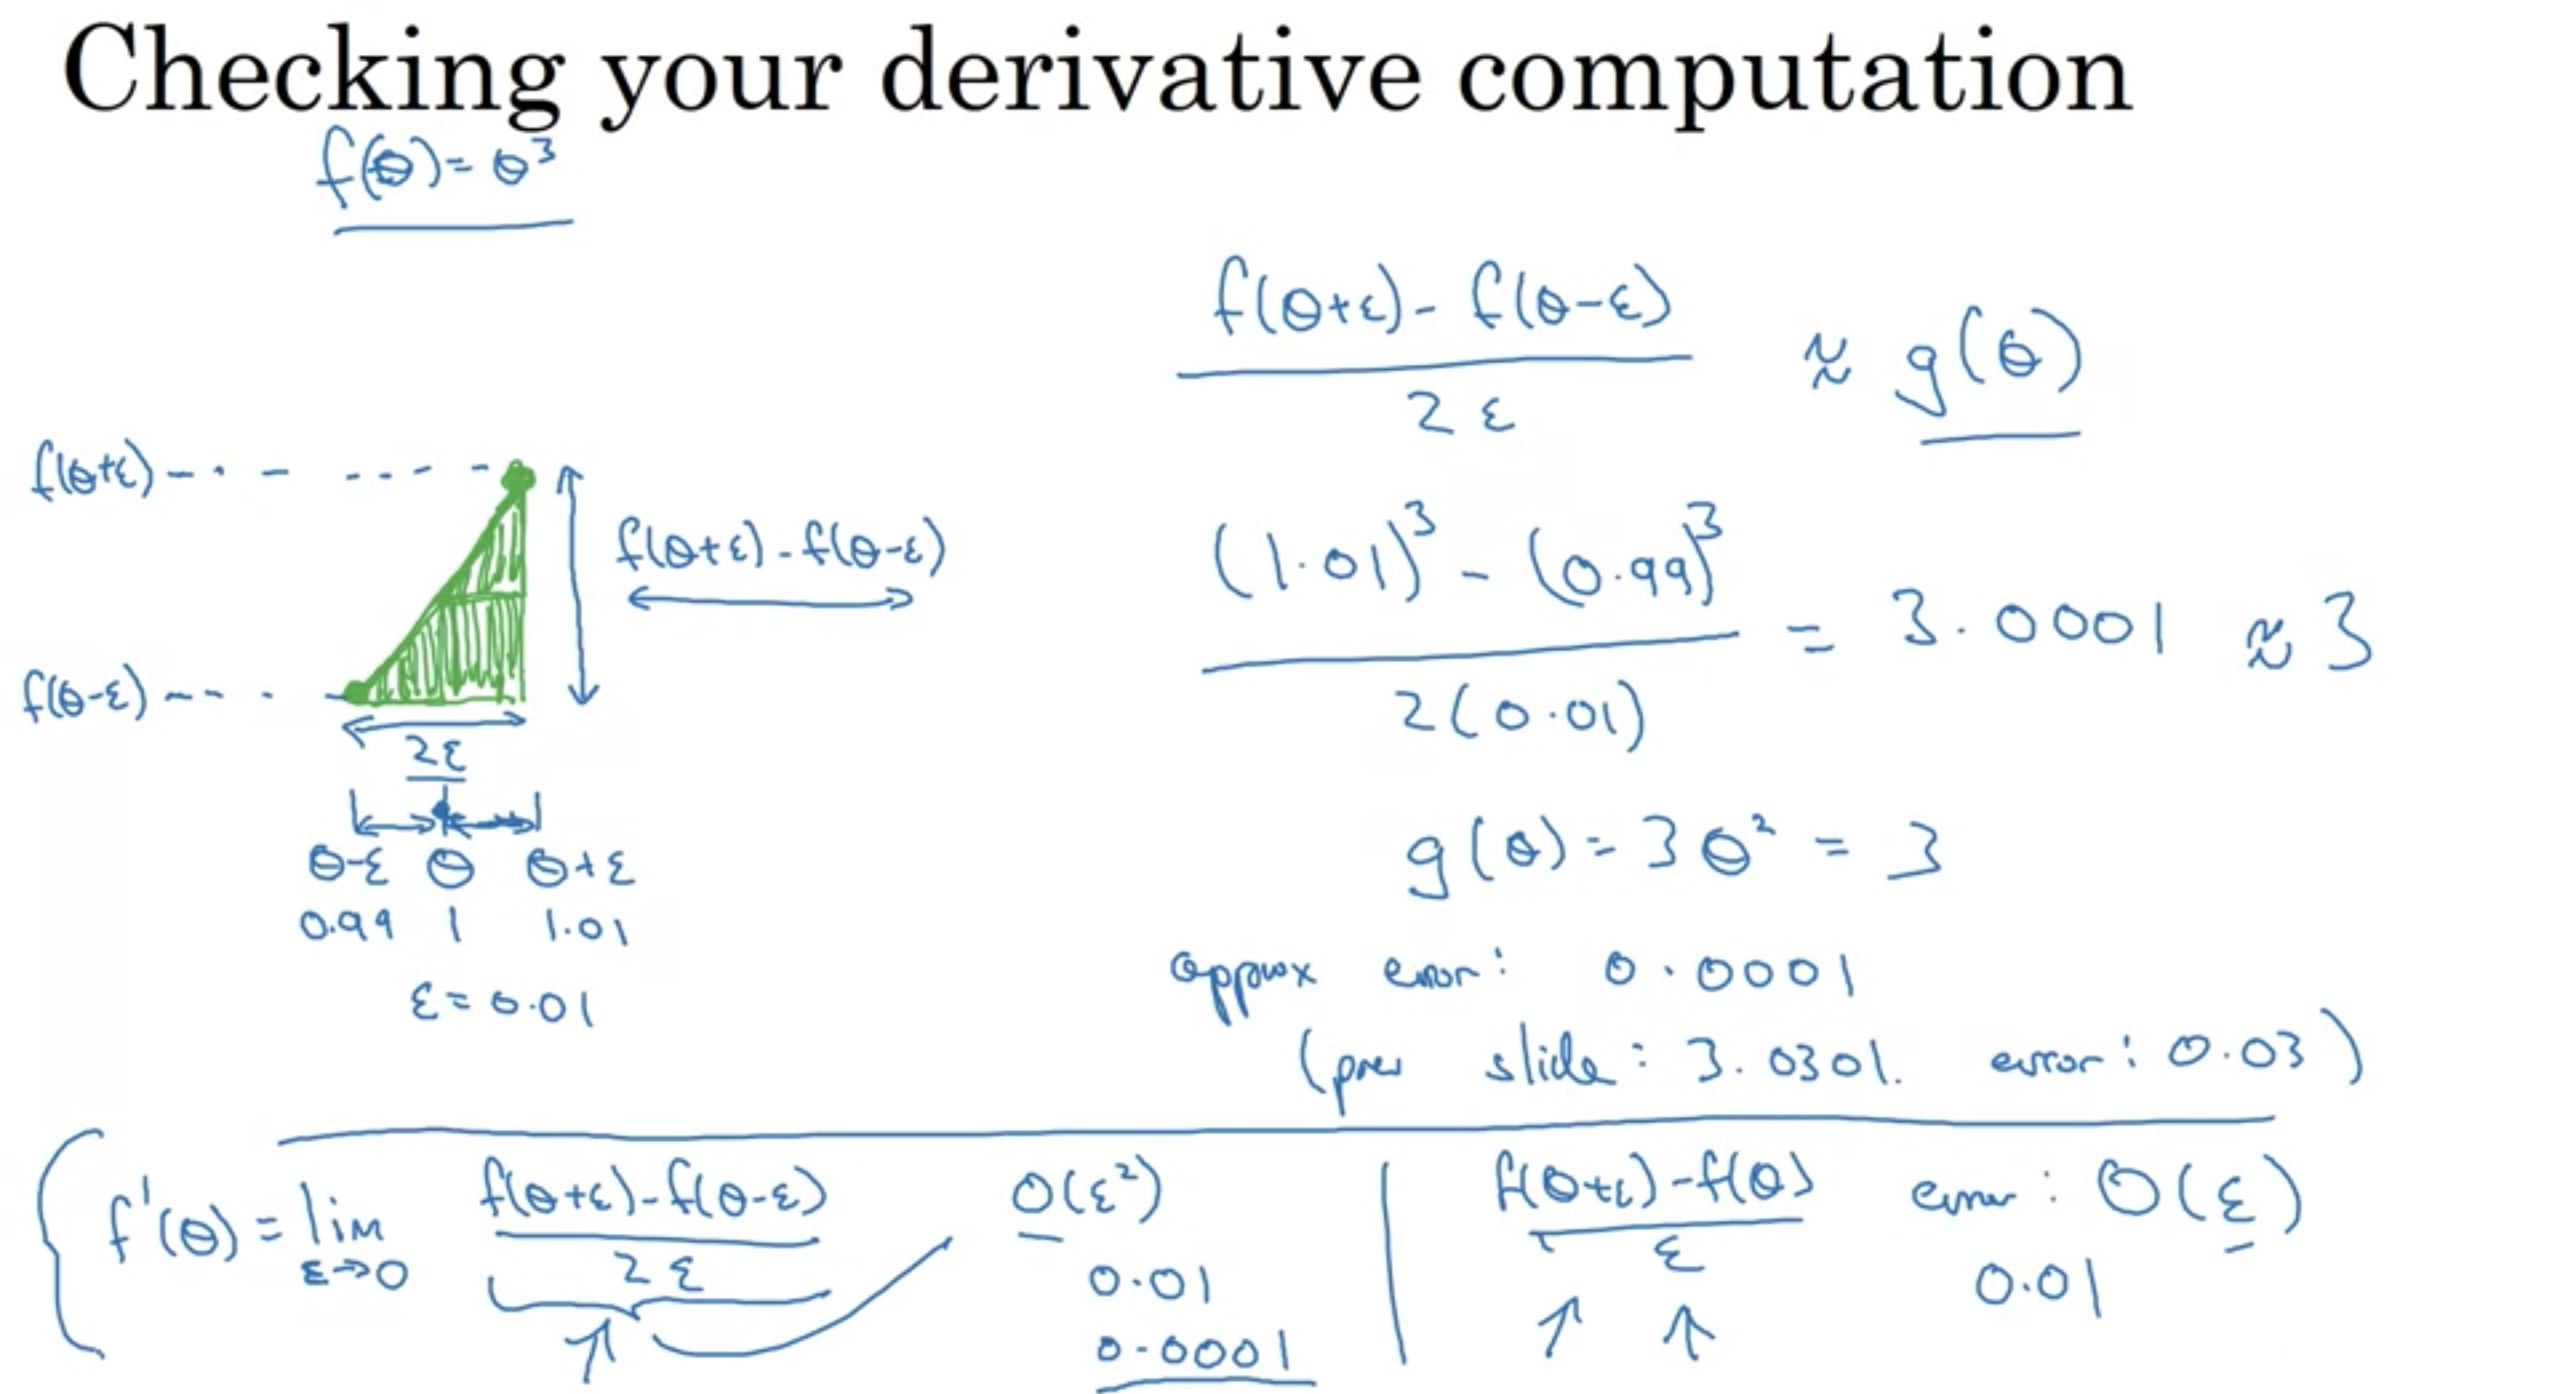 Checking your derivative computation
f(θ) = θ³
f(θ+ε) - f(θ-ε)
2ε
≈ g(θ)
f(θ+ε)
f(θ+ε) - f(θ-ε)
f(θ-ε)
2ε
θ-ε θ θ+ε
0.99 1 1.01
ε = 0.01
(1.01)³ - (0.99)³
2(0.01)
= 3.0001 ≈ 3
g(θ) = 3θ² = 3
approx error: 0.0001
(prev slide: 3.0301. error: 0.03)
f'(θ) = lim
ε→0
f(θ+ε) - f(θ-ε)
2ε
O(ε²)
0.01
0.0001
f(θ+ε) - f(θ)
ε
error: O(ε)
0.01